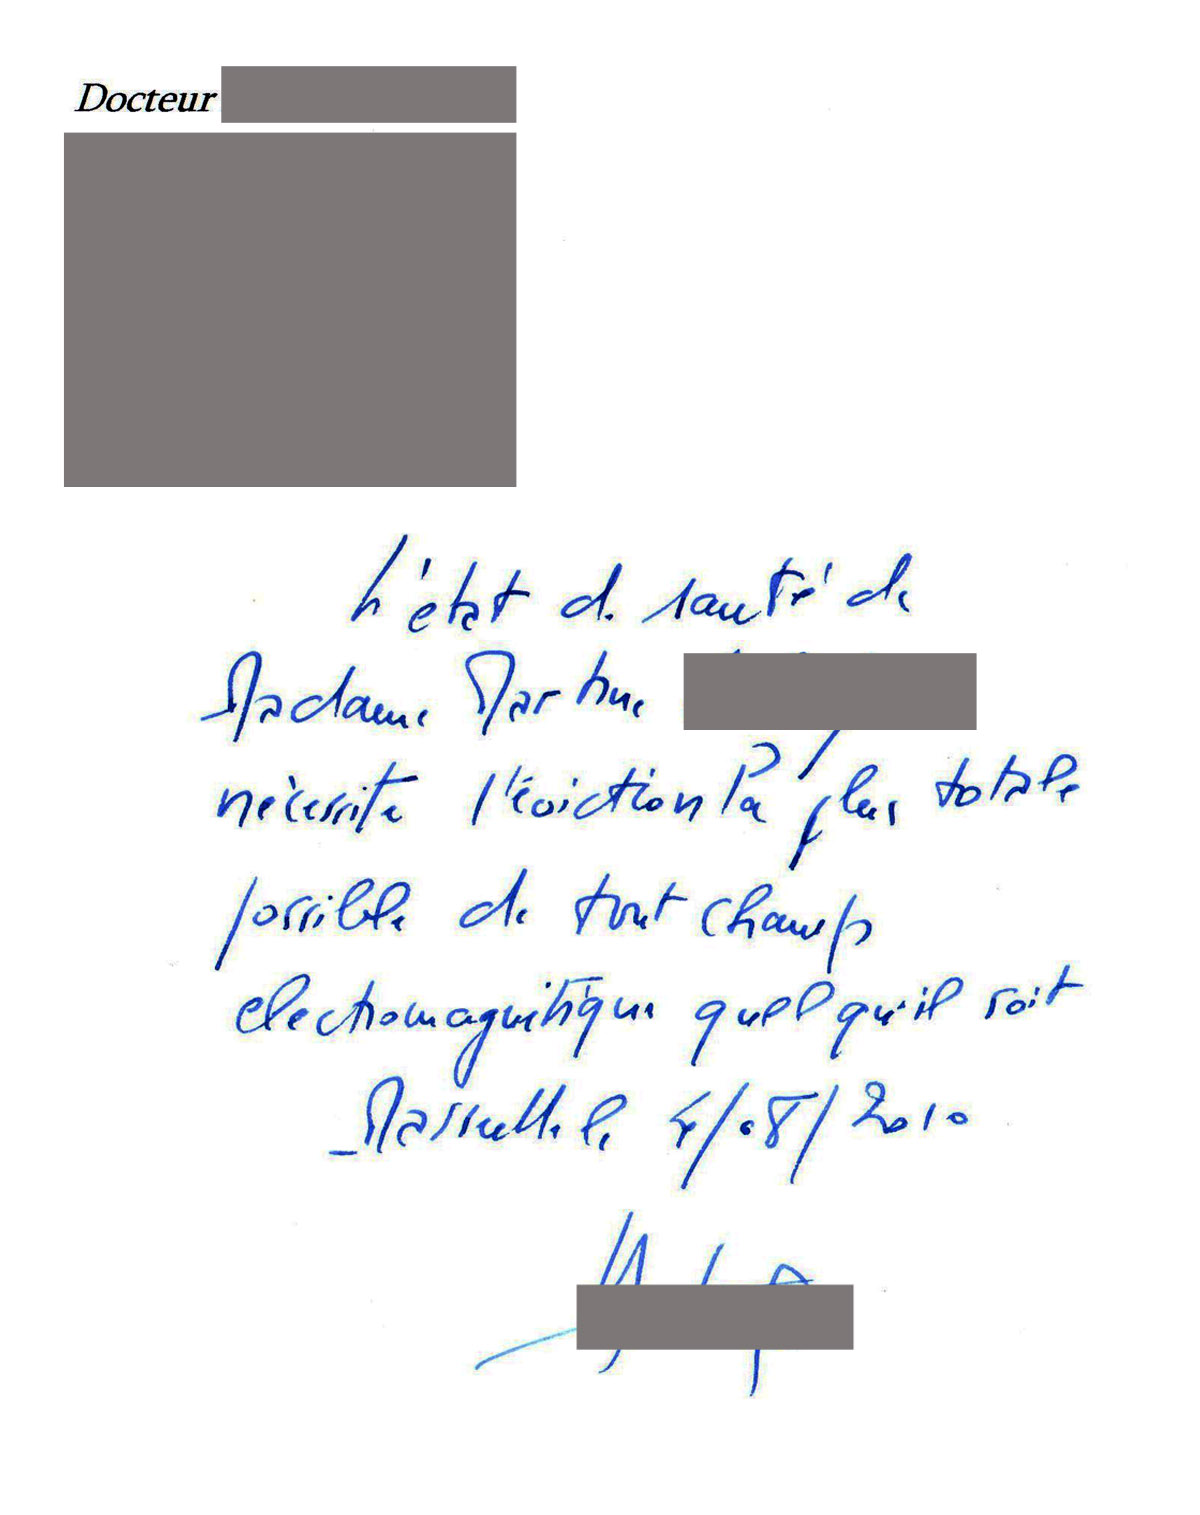 Docteur
L'état de santé de
Madame Martine
nécessite l'éviction la plus totale
possible de tout champ
electromagnétique quel qu'il soit
Marseille le 4/08/2010